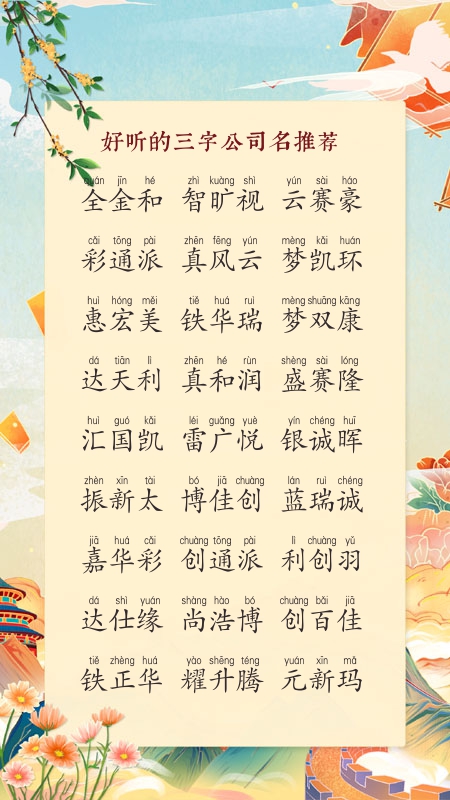 好听的三字公司名推荐
quán jīn hé zhì kuàng shì yún sài háo
全金和 智旷视 云赛豪
cǎi tōng pài zhēn fēng yún mèng kǎi huán
彩通派 真风云 梦凯环
huì hóng měi tiě huá ruì mèng shuāng kāng
惠宏美 铁华瑞 梦双康
dá tiān lì zhēn hé rùn shèng sài lóng
达天利 真和润 盛赛隆
huì guó kǎi léi guǎng yuè yín chéng huī
汇国凯 雷广悦 银诚晖
zhèn xīn tài bó jiā chuàng lán ruì chéng
振新太 博佳创 蓝瑞诚
jiā huá cǎi chuàng tōng pài lì chuàng yǔ
嘉华彩 创通派 利创羽
dá shì yuán shàng hào bó chuàng bǎi jiā
达仕缘 尚浩博 创百佳
tiě zhèng huá yào shēng téng yuán xīn mǎ
铁正华 耀升腾 元新玛